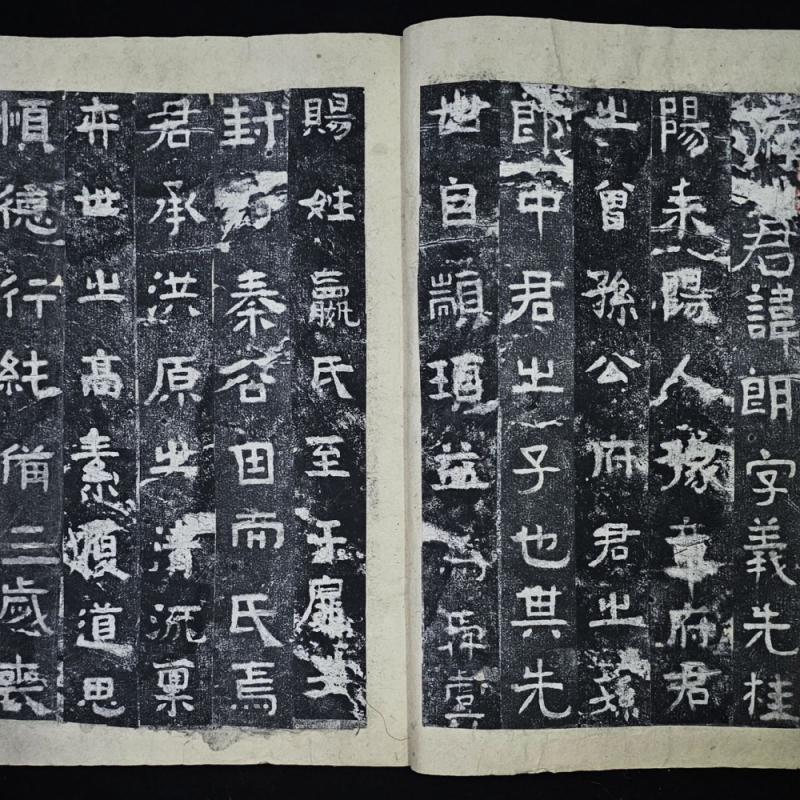 君諱朗字義先桂
陽耒陽人豫章府君
之曾孫公府君之孫
郎中君之子也其先
世自顓頊益為舜虞
賜姓嬴氏至于扉
封於秦谷因而氏焉
君承洪原之清流稟
弈世之高素履道思
順德行純備三歲喪